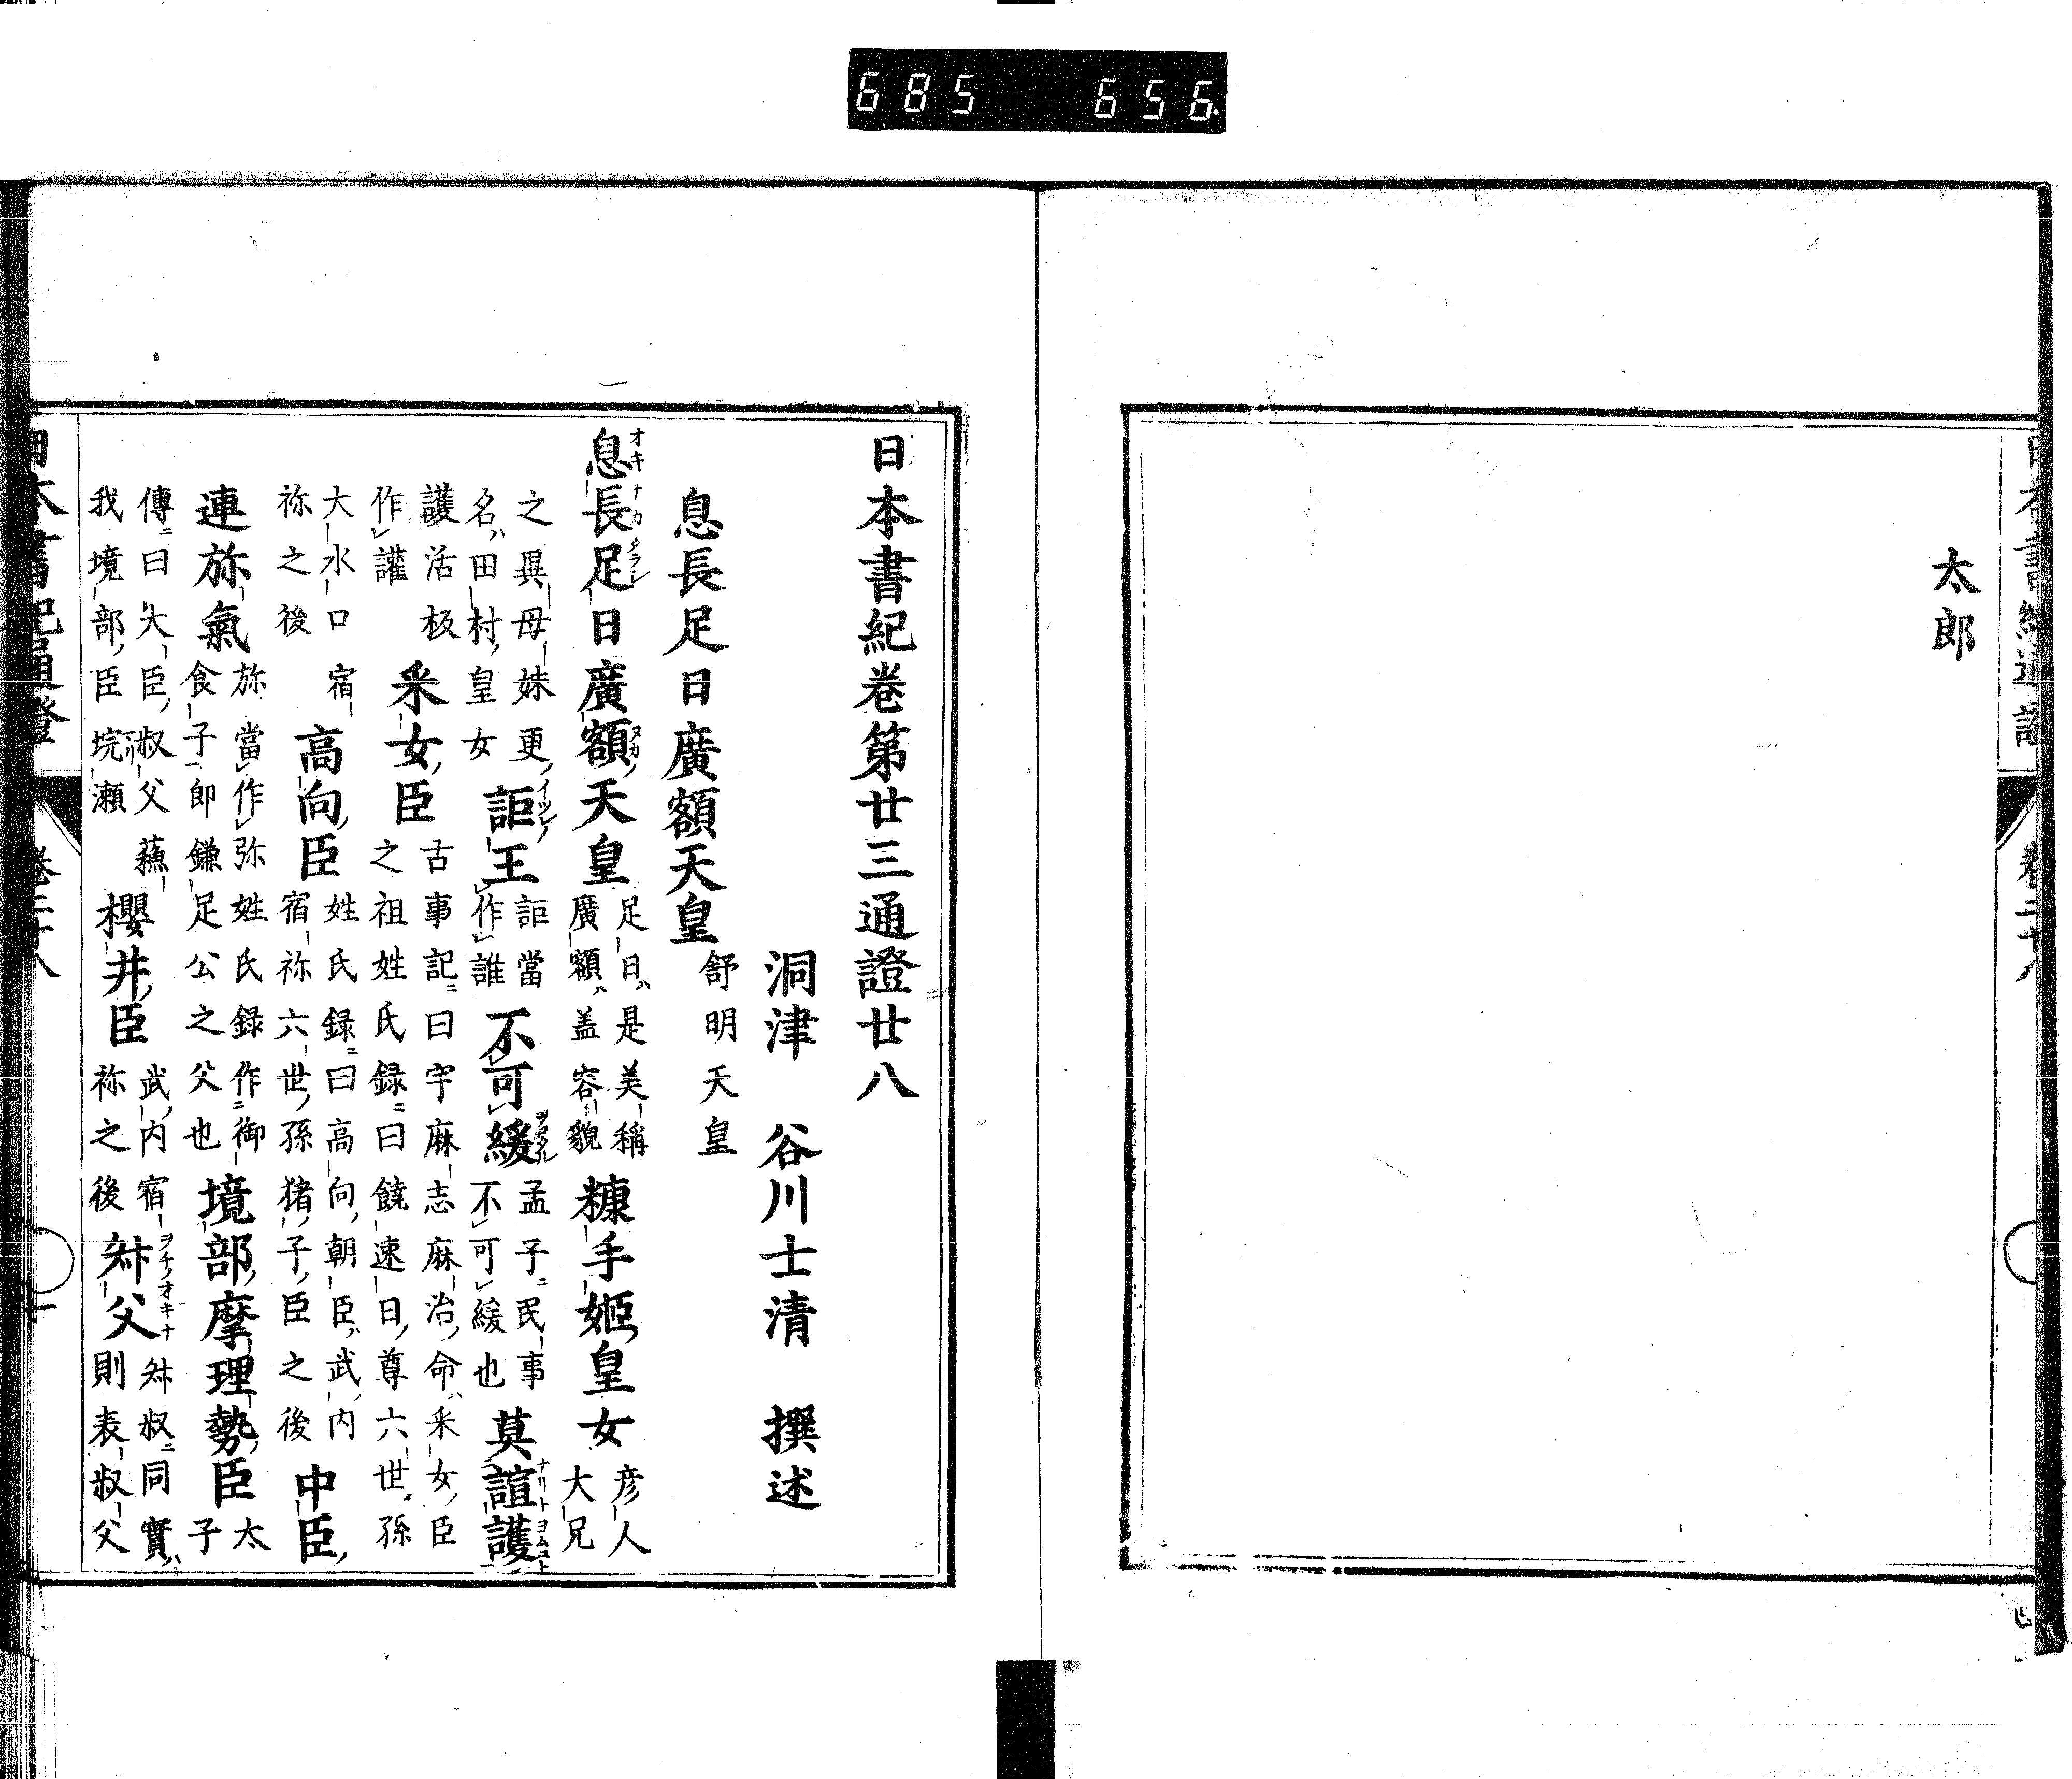 685 656
太郎
日本書紀通證
日本書紀卷第廿三通證廿八
洞津 谷川士清 撰述
息長足日廣額天皇 舒明天皇
息長足日廣額天皇 足日ハ是美稱廣額ハ盖容貌 糠手姫皇女 彦人大兄
之異母妹更名ハ田村皇女 詎王 詎當作誰 不可緩 孟子ニ民事不可緩也 莫諠護
護活板作讙 釆女臣 古事記ニ曰宇麻志麻治命ハ釆女臣之祖姓氏録ニ曰饒速日尊六世孫
大水口宿祢之後 高向臣 姓氏録ニ曰高向朝臣ハ武内宿祢六世孫猪子臣之後 中臣
連旀氣 旀當作弥姓氏録作御食子即鎌足公之父也 境部摩理勢臣 太子
傳ニ曰大臣叔父蘓我境部臣垸瀬 櫻井臣 武内宿祢之後 叔父 叔叔ニ同實ハ則表叔父
日本書紀通證 卷二十八 一